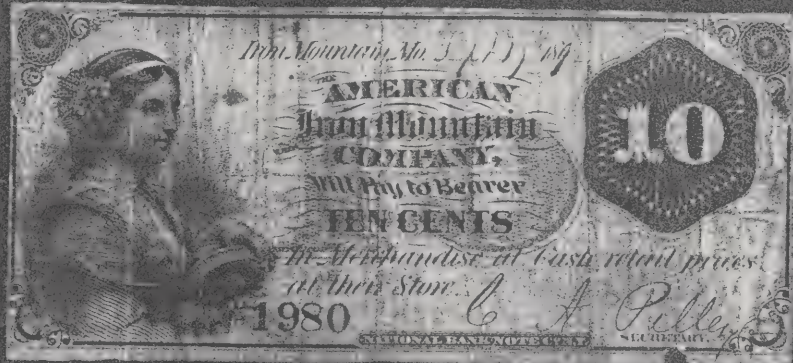 Iron Mountain, Mo. Sept 1, 189
THE
AMERICAN
Iron Mountain
COMPANY,
Will Pay to Bearer
TEN CENTS
In Merchandise at Cash retail prices
at their Store.
10
1980
C A Pilley
SECRETARY.
NATIONAL BANK NOTE CO. N.Y.